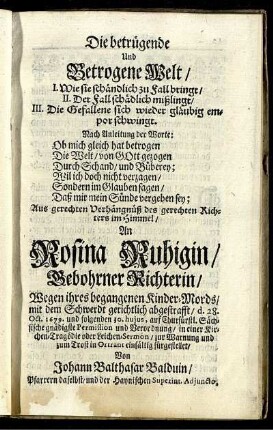 Die betrügende
Und
Betrogene Welt/
I. Wie sie schändlich zu Fall bringt/
II. Der Fall schädlich mißlingt/
III. Die Gefallene sich wieder gläubig em-
por schwingt.
Nach Anleitung der Worte:
Ob mich gleich hat betrogen
Die Welt/ von GOtt gezogen
Durch Schand/ und Büberey;
Wil ich doch nicht verzagen/
Sondern im Glauben sagen/
Daß mir mein Sünde vergeben sey;
Aus gerechten Verhängnüß des gerechten Rich-
ters im Himmel/
An
Rosina Ruhigin/
Gebohrner Richterin/
Wegen ihres begangenen Kinder-Mords/
mit dem Schwerdt gerichtlich abgestrafft/ d. 28.
Oct. 1679. und folgenden 30. hujus, auf Churfürstl. Säch-
sische gnädigste Permission und Verordnung/ in einer Kir-
chen-Tragödie oder Leichen-Sermon/ zur Warnung und
zum Trost in Ortrant einfältig fürgestellet/
Von
Johann Balthasar Balduin/
Pfarrern daselbst/ und der Haynischen Superint. Adjuncto,